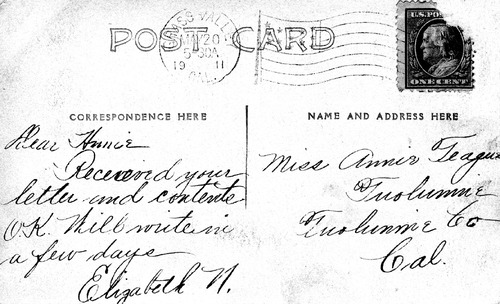 POST CARD
GRASS VALLEY
20
5-30A
19 11
CAL.
U.S. POSTAGE
ONE CENT
CORRESPONDENCE HERE
NAME AND ADDRESS HERE
Dear Annie
Received your
letter and contents
O.K. Will write in
a few days
Elizabeth N.
Miss Annie Teague
Tuolumne
Tuolumne Co
Cal.